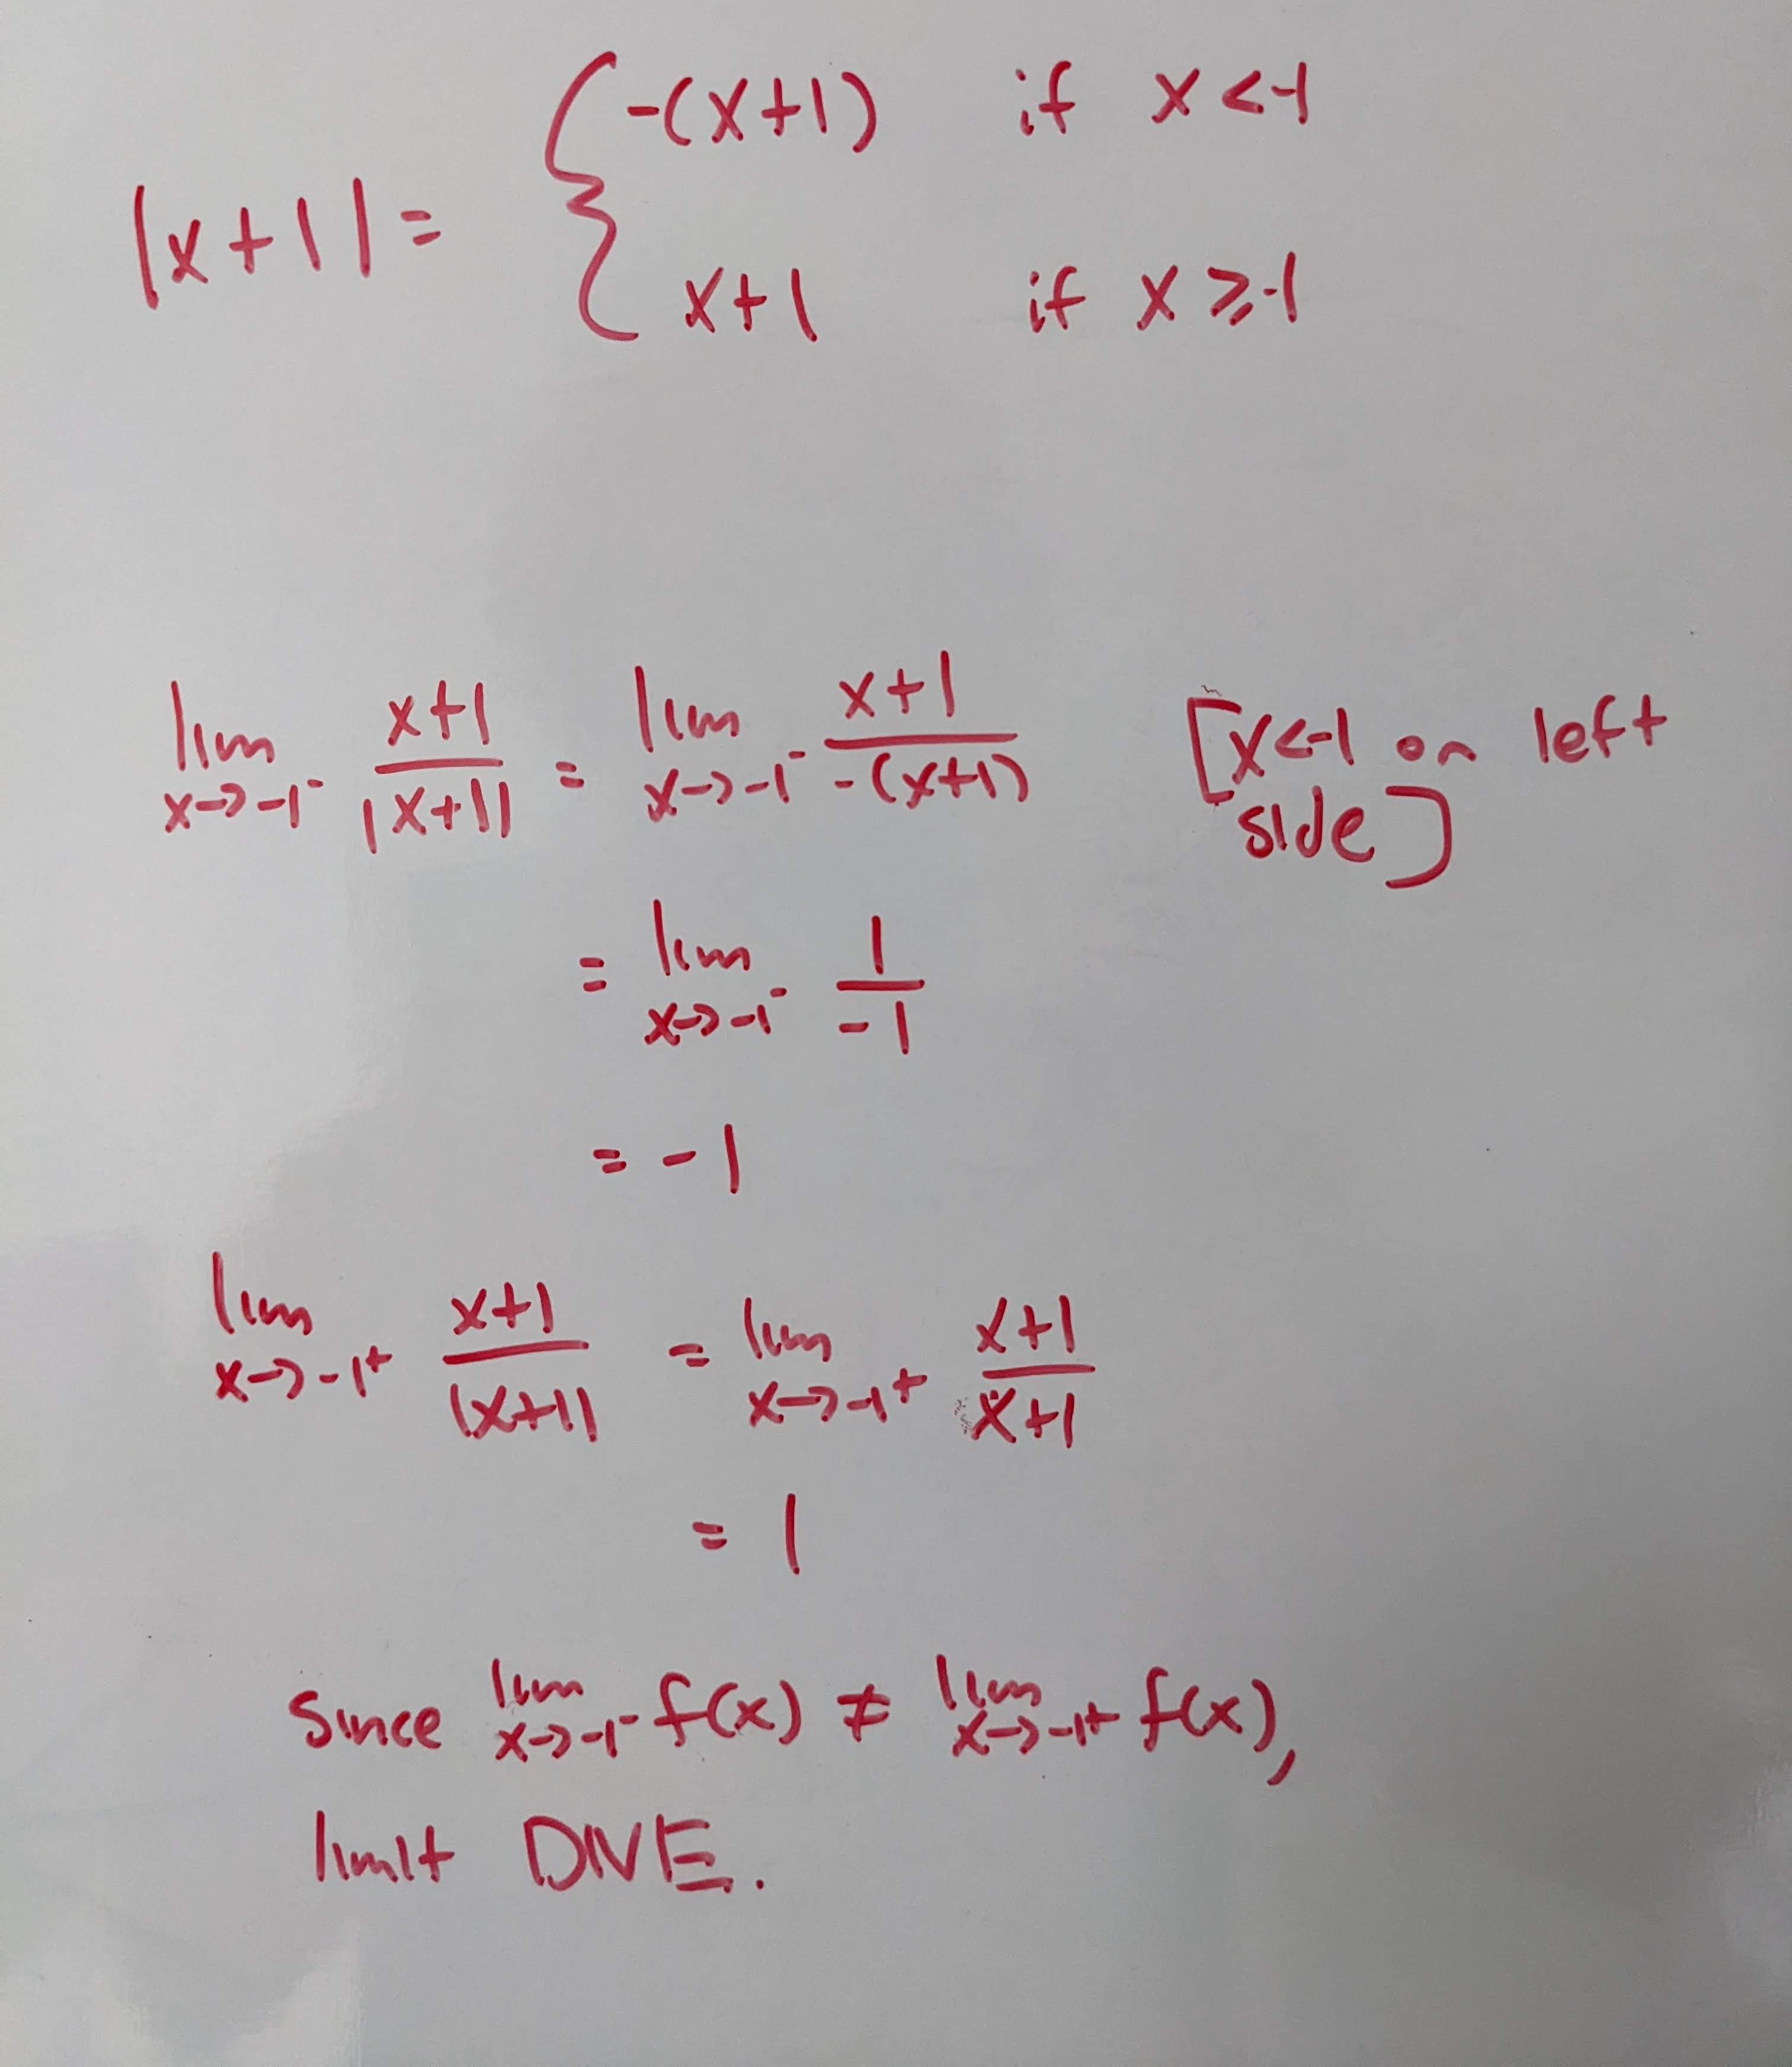 |x+1| = { -(x+1) if x<-1
x+1 if x⩾-1
lim x→-1⁻ x+1/|x+1| = lim x→-1⁻ x+1/-(x+1) [x<-1 on left
side]
= lim x→-1⁻ 1/-1
= -1
lim x→-1⁺ x+1/|x+1| = lim x→-1⁺ x+1/x+1
= 1
Since lim x→-1⁻ f(x) ≠ lim x→-1⁺ f(x),
limit DNE.